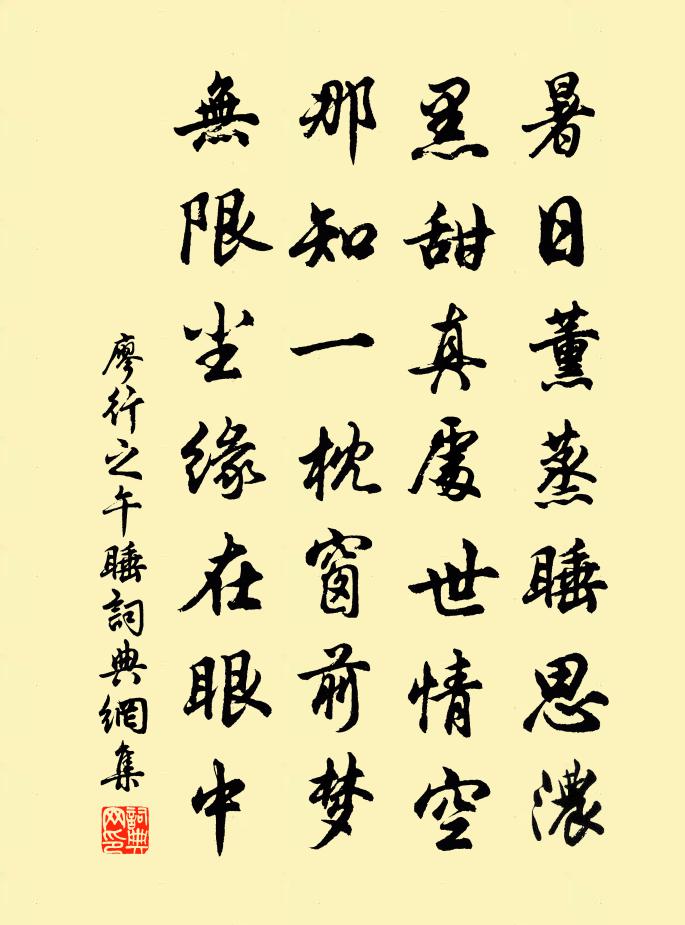 暑日薰蒸睡思濃
黑甜真處世情空
那知一枕窗前梦
無限尘緣在眼中
廖行之午睡詞典網集
詞典网印